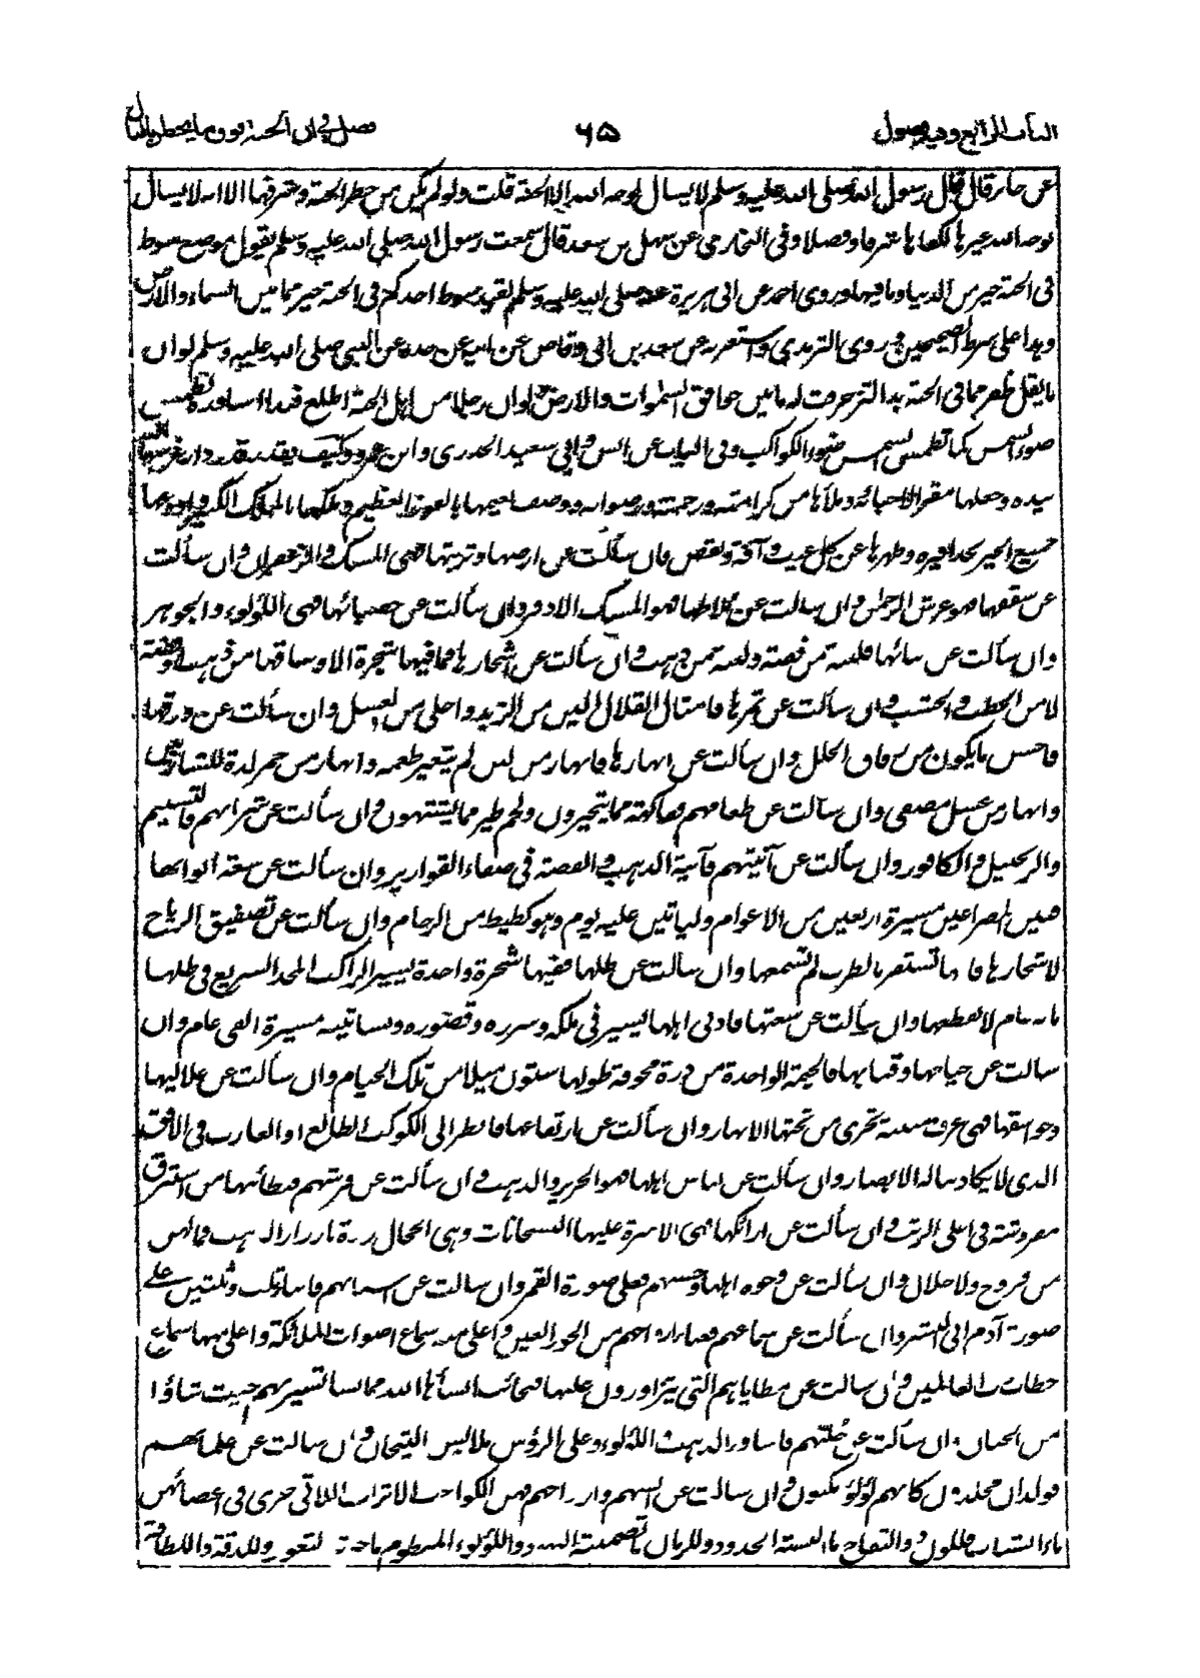 الباب الرابع وفيه فصول ۶۵ فصل في ان الجنة فوق ما يخطر بالبال
عن جابر قال قال رسول الله صلى الله عليه وسلم لا يسال لوجه الله الا الجنة قلت ولو لم يكن من خطر الجنة وشرفها الا انه لا يسال
لوجه الله غيرها لكفاها شرفا وفضلا وفي البخاري عن سهل بن سعد قال سمعت رسول الله صلى الله عليه وسلم يقول موضع سوط
في الجنة خير من الدنيا وما فيها وروى احمد عن ابي هريرة عنه صلى الله عليه وسلم لقيد سوط احدكم في الجنة خير مما بين السماء والارض
وهذا على شرط الصحيحين وروى الترمذي واستغربه عن سعد بن ابي وقاص عن ابيه عن جده عن النبي صلى الله عليه وسلم لو ان
ما يقل ظفر مما في الجنة بدا لتزخرفت له ما بين خوافق السموات والارض ولو ان رجلا من اهل الجنة اطلع فبدا اساوره لطمس
ضوء الشمس كما تطمس الشمس ضوء الكواكب وفي الباب عن انس وابي سعيد الخدري وابن عمرو وكيف يقدر قدر دار غرسها الله
بيده وجعلها مقرا لاحبائه وملأها من كرامته ورحمته ورضوانه ووصف نعيمها بالفوز العظيم وملكها بالملك الكبير واودعها
جميع الخير بحذافيره وطهرها عن كل عيب وآفة ونقص فان سألت عن ارضها وتربتها فهي المسك والزعفران وان سألت
عن سقفها فهو عرش الرحمن وان سالت عن بلاطها فهو المسك الاذفر وان سألت عن حصبائها فهي اللؤلوء والجوهر
وان سألت عن بنائها فلبنة من فضة ولبنة من ذهب وان سألت عن اشجارها فما فيها شجرة الا وساقها من ذهب وفضة
لا من الحطب والخشب وان سألت عن ثمرها فامثال القلال الين من الزبد واحلى من العسل وان سألت عن ورقها
فاحسن ما يكون من رقاق الحلل وان سألت عن انهارها فانهار من لبن لم يتغير طعمه وانهار من خمر لذة للشاربين
وانهار من عسل مصفى وان سألت عن طعامهم ففاكهة مما يتخيرون ولحم طير مما يشتهون وان سألت عن شرابهم فالتسنيم
والزنجبيل والكافور وان سألت عن آنيتهم فآنية الذهب والفضة في صفاء القوارير وان سألت عن سعة ابوابها
فبين المصراعين مسيرة اربعين من الاعوام ولياتين عليه يوم وهو كظيظ من الزحام وان سألت عن تصفيق الرياح
لاشجارها فانها تستفز بالطرب لم تسمعها وان سالت عن ظلها ففيها شجرة واحدة يسير الراكب المجد السريع في ظلها
مائة عام لا يقطعها وان سألت عن سعتها فادنى اهلها يسير في ملكه وسرره وقصوره وبساتينه مسيرة الفي عام وان
سالت عن خيامها وقبابها فالخيمة الواحدة من درة مجوفة طولها ستون ميلا من تلك الخيام وان سألت عن علاليها
وجواسقها فهي غرف مبنية تجري من تحتها الانهار وان سألت عن ارتفاعها فانظر الى الكوكب الطالع او الغارب في الافق
الذي لا يكاد يناله الابصار وان سألت عن لباس اهلها فهو الحرير والذهب وان سألت عن فرشهم فبطائنها من استبرق
مفروشة في اعلى الرتب وان سألت عن ارائكها فهي الاسرة عليها البشخانات وهي الحجال مزررة بازرار الذهب فما لهن
من فروج ولا خلال وان سألت عن وجوه اهلها وحسنهم فعلى صورة القمر وان سالت عن اسنانهم فابناء ثلث وثلثين على
صورة آدم ابي البشر وان سألت عن سماعهم فغناء ازواجهم من الحور العين واعلى منه سماع اصوات الملائكة واعلى منهما سماع
خطاب رب العالمين وان سالت عن مطاياهم التي يتزاورون عليها فنجائب انشأها الله مما شاء تسير بهم حيث شاؤا
من الجنان وان سألت عن حليتهم فاساور الذهب واللؤلوء وعلى الرؤس ملابس التيجان وان سالت عن غلمانهم
فولدان مخلدون كانهم لؤلؤ مكنون وان سالت عن عرائسهم وازواجهم فهن الكواعب الاتراب اللاتي جرى في اعضائهن
ماء الشباب فللورد والتفاح ما لبسته الخدود وللرمان ما تضمنته النهود واللؤلوء المنظوم ما حوته الثغور وللدقة واللطافة